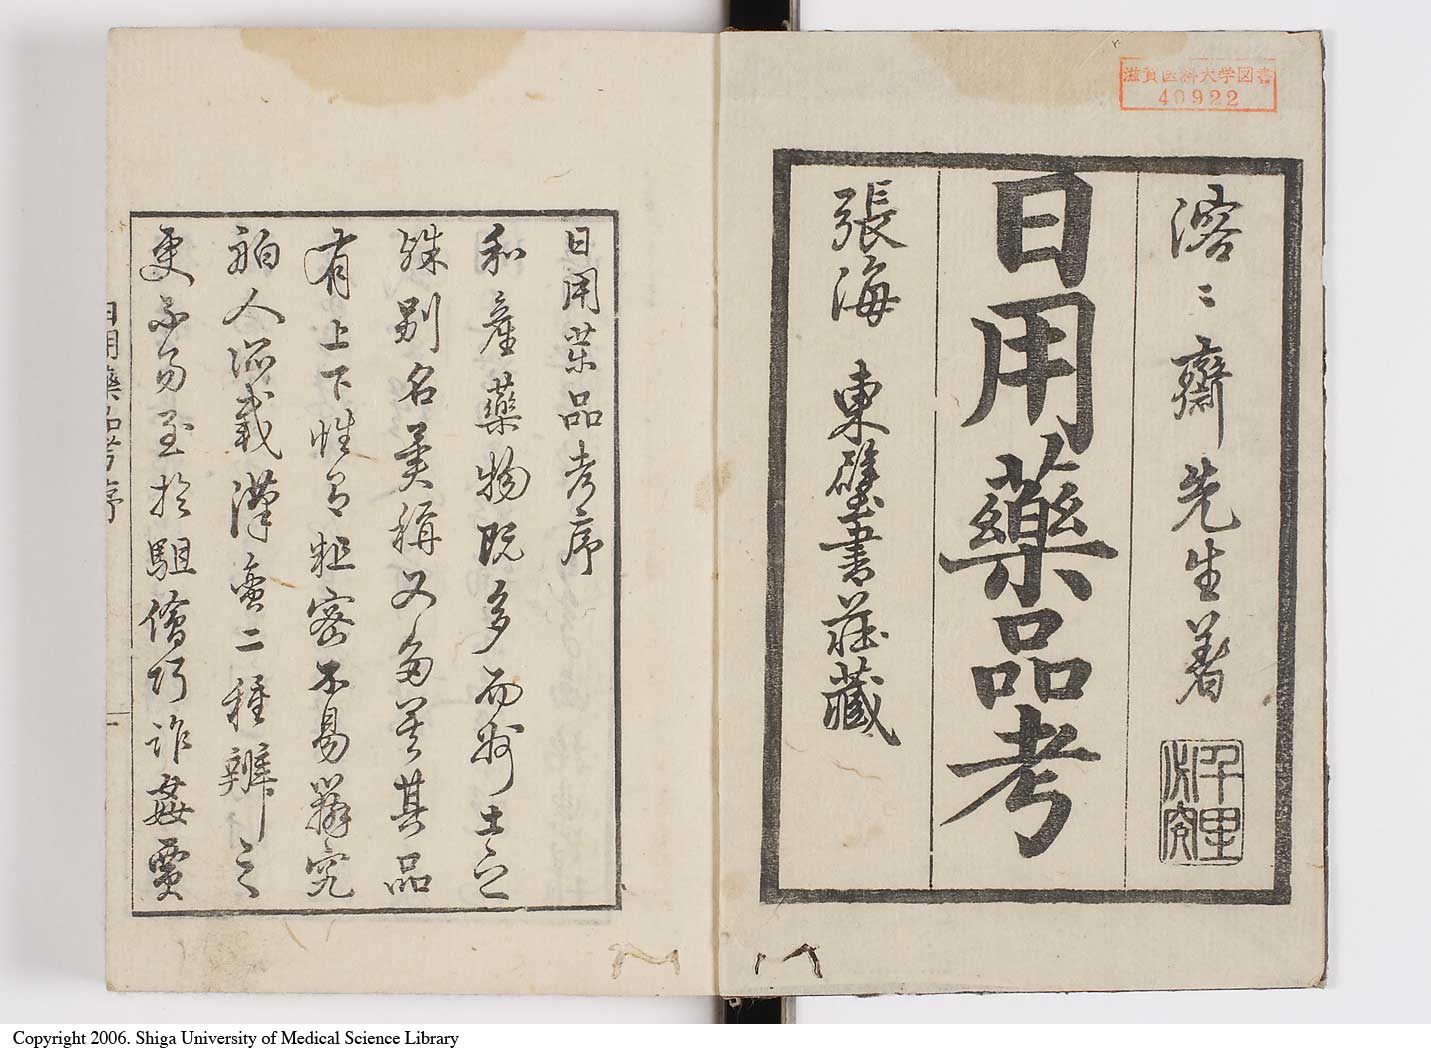 滋賀医科大学図書
40922
溶〻齋先生著
日用藥品考
張海 東壁書莊藏
千里
必究
日用薬品考序
和產藥物既多而州土之
殊別名美稱又夛其品
有上下性有粗密不易釋究
舶人所載漢蛮二種辨之
更不易至於駔儈巧詐姦賈
日用藥品考序
一
Copyright 2006. Shiga University of Medical Science Library